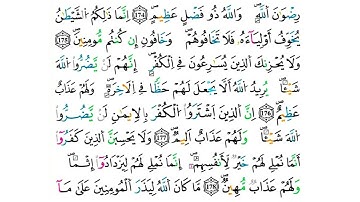 رِضْوَٰنَ ٱللَّهِۗ وَٱللَّهُ ذُو فَضْلٍ عَظِيمٍ ﴿١٧٤﴾ إِنَّمَا ذَٰلِكُمُ ٱلشَّيْطَٰنُ
يُخَوِّفُ أَوْلِيَآءَهُۥ فَلَا تَخَافُوهُمْ وَخَافُونِ إِن كُنتُم مُّؤْمِنِينَ ﴿١٧٥﴾
وَلَا يَحْزُنكَ ٱلَّذِينَ يُسَٰرِعُونَ فِى ٱلْكُفْرِۚ إِنَّهُمْ لَن يَضُرُّوا۟ ٱللَّهَ
شَيْـًٔاۗ يُرِيدُ ٱللَّهُ أَلَّا يَجْعَلَ لَهُمْ حَظًّا فِى ٱلْءَاخِرَةِۖ وَلَهُمْ عَذَابٌ
عَظِيمٌ ﴿١٧٦﴾ إِنَّ ٱلَّذِينَ ٱشْتَرَوُا۟ ٱلْكُفْرَ بِٱلْإِيمَٰنِ لَن يَضُرُّوا۟
ٱللَّهَ شَيْـًٔا وَلَهُمْ عَذَابٌ أَلِيمٌ ﴿١٧٧﴾ وَلَا يَحْسَبَنَّ ٱلَّذِينَ كَفَرُوٓا۟
أَنَّمَا نُمْلِى لَهُمْ خَيْرٌ لِّأَنفُسِهِمْۚ إِنَّمَا نُمْلِى لَهُمْ لِيَزْدَادُوٓا۟ إِثْمًاۚ
وَلَهُمْ عَذَابٌ مُّهِينٌ ﴿١٧٨﴾ مَّا كَانَ ٱللَّهُ لِيَذَرَ ٱلْمُؤْمِنِينَ عَلَىٰ مَآ